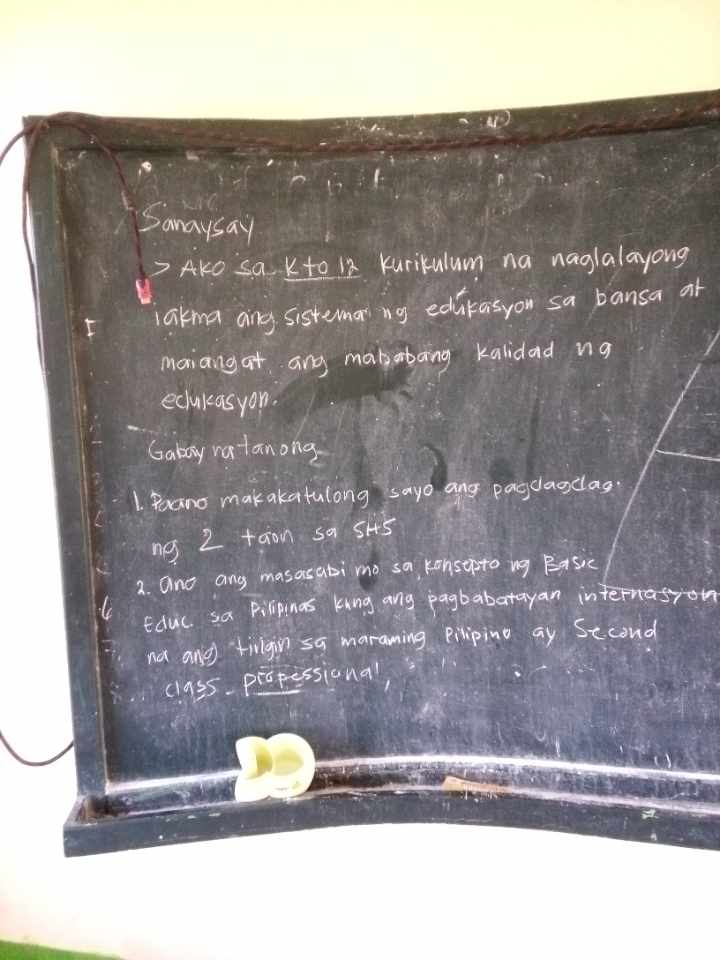 Sanaysay
> Ako sa K to 12 kurikulum na naglalayong
iakma ang sistema ng edukasyon sa bansa at
maiangat ang mababang kalidad ng
edukasyon.
Gabay na tanong
1. Paano makakatulong sayo ang pagdagdag
ng 2 taon sa SHS
2. ano ang masasabi mo sa konsepto ng Basic
Educ sa Pilipinas kung ang pagbabatayan internasyon
na ang tingin sa maraming Pilipino ay Second
class propessional,